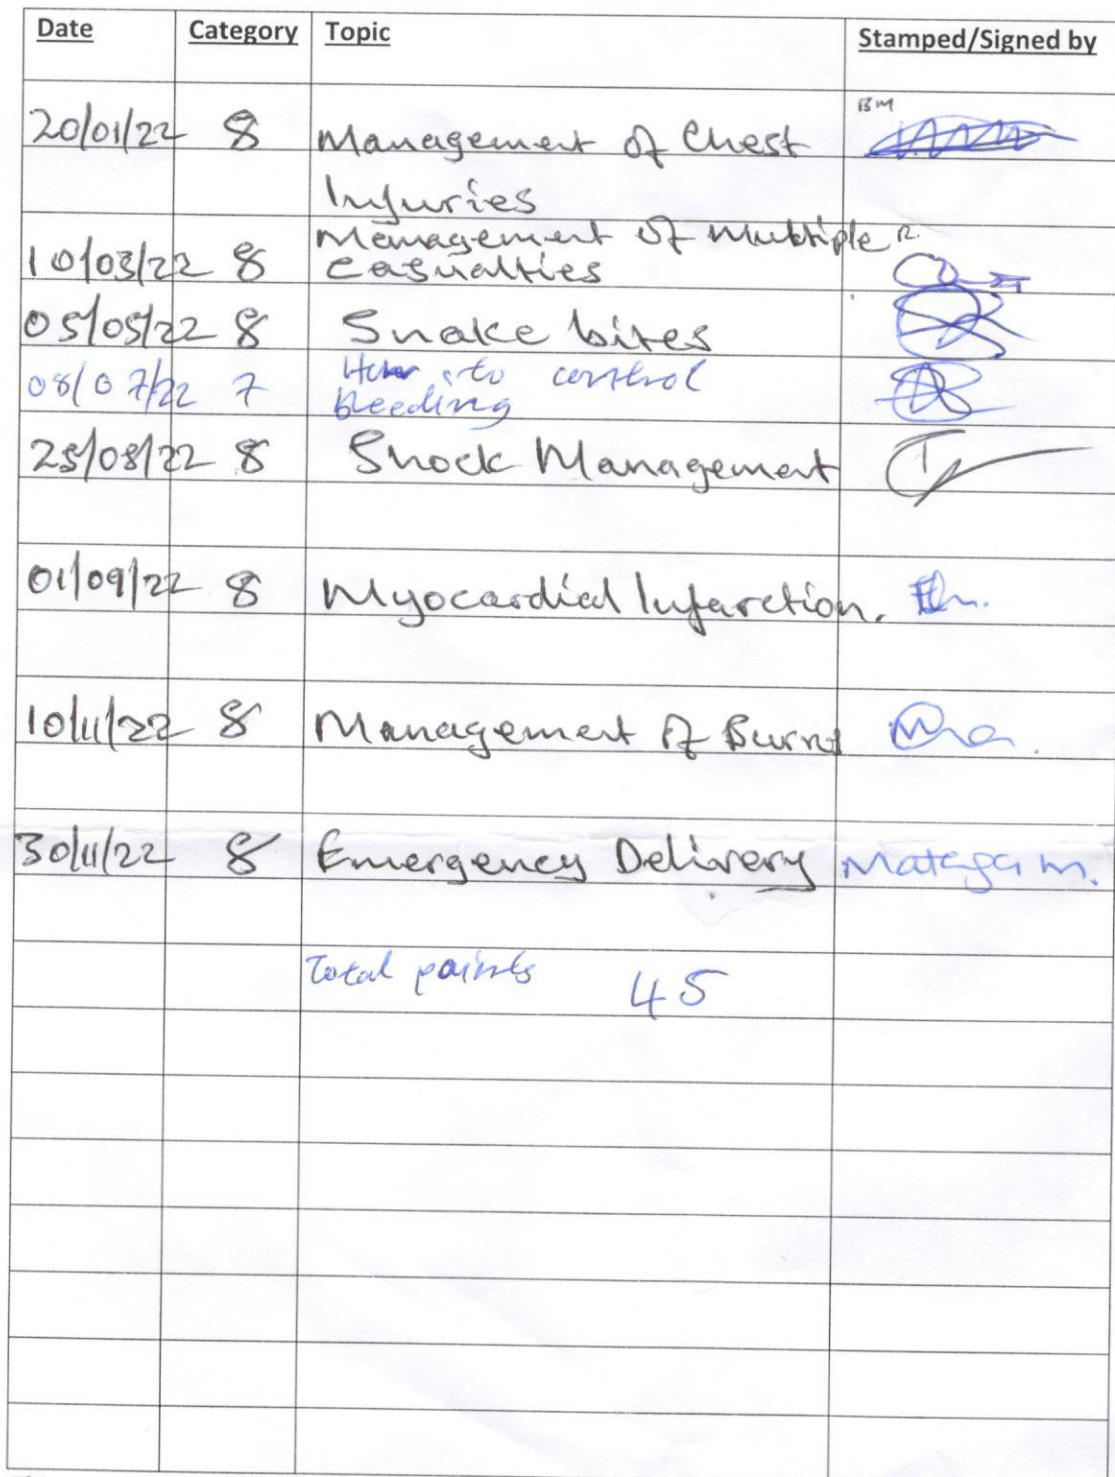 Date Category Topic Stamped/Signed by
BM
20/01/22 8 Management of Chest
Injuries
Management of Multiple R.
10/03/22 8 Casualties
05/05/22 8 Snake bites
08/07/22 7 How to control
bleeding
25/08/22 8 Shock Management
01/09/22 8 Myocardial Infarction.
10/11/22 8 Management of Burns
30/11/22 8 Emergency Delivery Matega m.
Total points 45